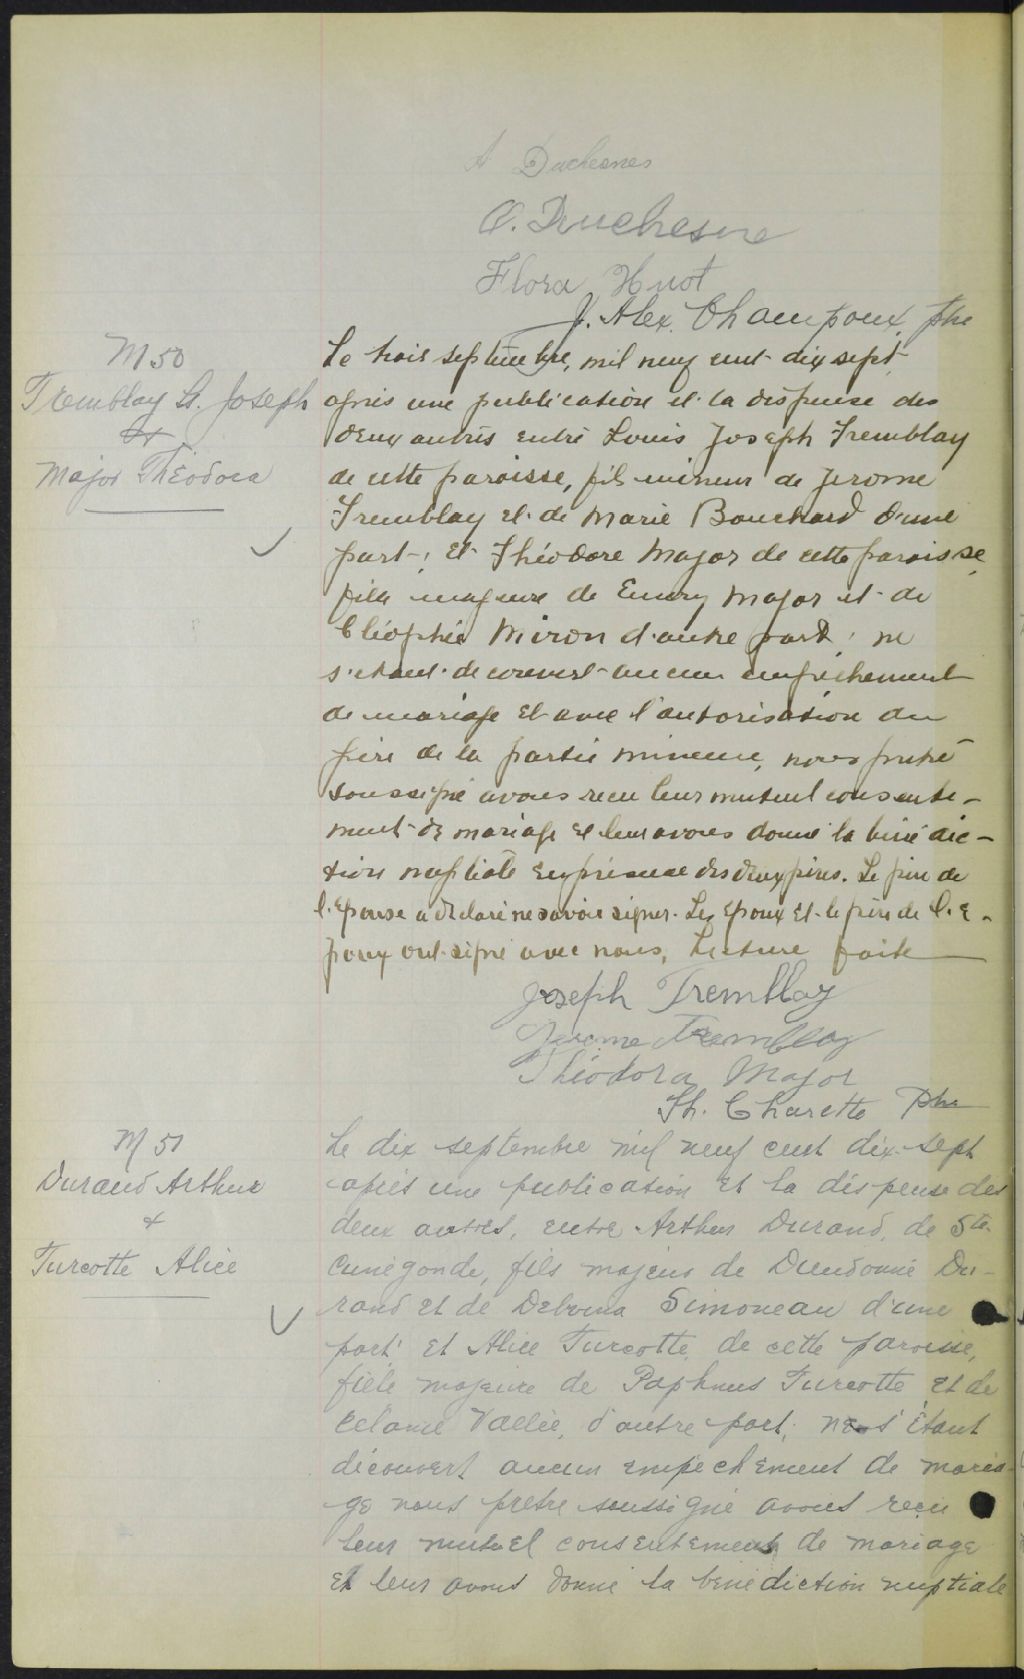 A Duchesnes
A. Duchesne
Flora Huot
J. Alex. Champoux, ptre
M 50
Tremblay Ls. Joseph
&
Major Théodora
Le trois septembre, mil neuf cent dix sept
après une publication et la dispense des
deux autres entre Louis Joseph Tremblay
de cette paroisse, fils mineur de Jerome
Tremblay et de Marie Bouchard d'une
part; Et Théodore Major de cette paroisse,
fille majeure de Emery Major et de
Cléophée Miron d'autre part; ne
s'étant découvert aucun empêchement
de mariage Et avec l'autorisation du
père de la partie mineure, nous prêtre
soussigné avons reçu leur mutuel consente-
ment de mariage et leur avons donné la bénédic-
tion nuptiale en présence des deux pères. Le père de
l'Epouse a déclaré ne savoir signer. Les Epoux Et le père de l'E-
poux ont signé avec nous, Lecture faite
Joseph Tremblay
Jerome Tremblay
Théodora Major
Th. Charette Ptre
M 51
Durand Arthur
&
Turcotte Alice
Le dix septembre mil neuf cent dix-sept
après une publication Et la dispense des
deux autres, entre Arthur Durand, de Ste.
Cunégonde, fils majeur de Dieudonné Du-
rand et de Delvina Simoneau d'une
part Et Alice Turcotte de cette paroisse,
fille majeure de Paphnus Turcotte Et de
Vallée, d'autre part; ne s'Étant
découvert aucun empêchement de maria-
ge nous prêtre soussigné avons reçu
leur mutuel consentement de mariage
Et leur avons donné la bénédiction nuptiale